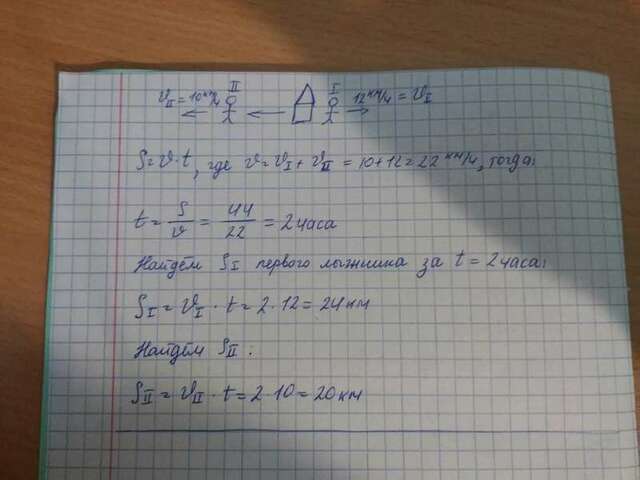 II I
v_II = 10 км/ч 12 км/ч = v_I
S = v · t, где v = v_I + v_II = 10 + 12 = 22 км/ч, тогда:
t = S/v = 44/22 = 2 часа
Найдём S_I первого лыжника за t = 2 часа:
S_I = v_I · t = 2 · 12 = 24 км
Найдём S_II:
S_II = v_II · t = 2 · 10 = 20 км